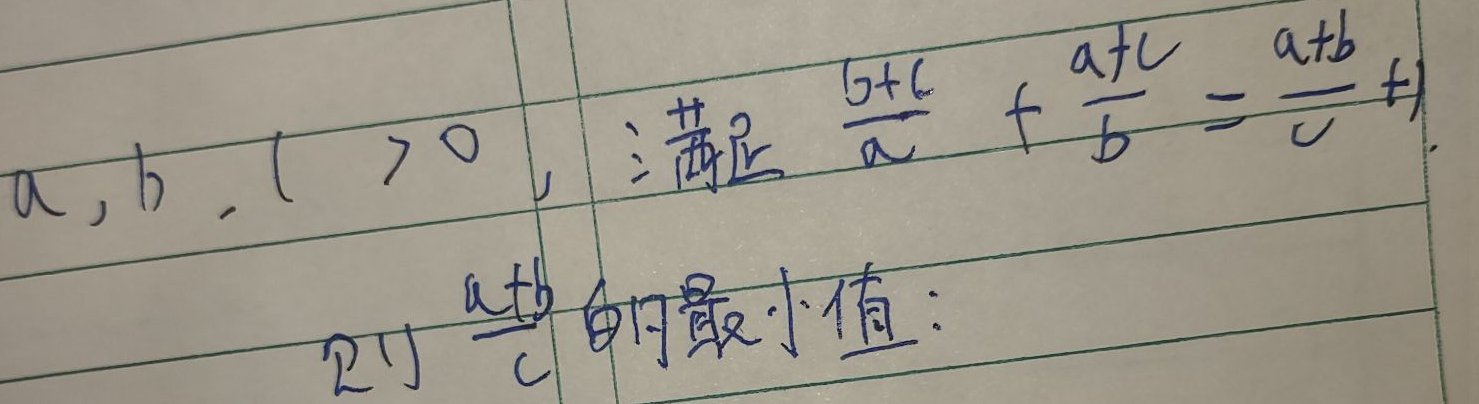 a, b, c > 0, 满足 (b+c)/a + (a+c)/b = (a+b)/c + 1.
则 (a+b)/c 的最小值: